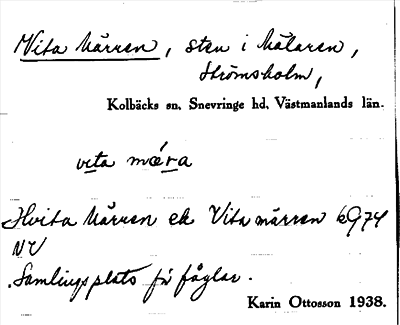 Vita Märren, sten i Mälaren,
Strömsholm,
Kolbäcks sn. Snevringe hd. Västmanlands län.
vita mæ´ra
Hvita Märren ek Vita märren k974
NV
Samlingsplats för fåglar.
Karin Ottosson 1938.